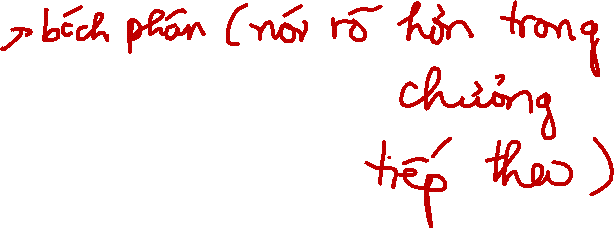 → bách phân (nói rõ hơn trong
chương
tiếp theo)